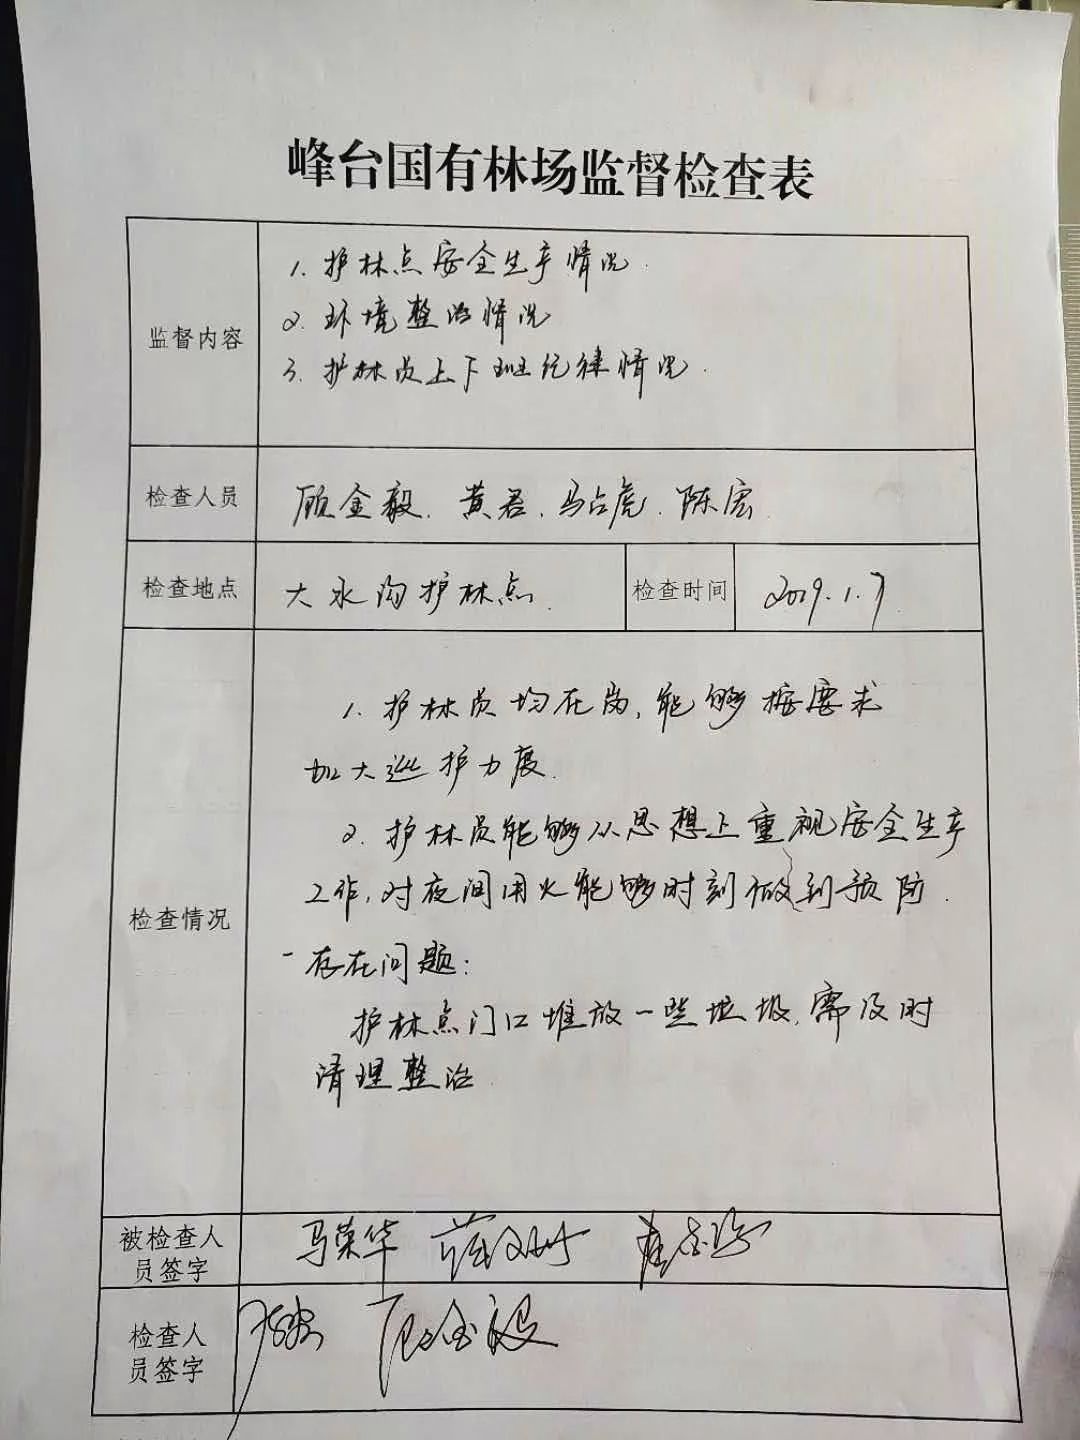 峰台国有林场监督检查表
监督内容
1. 护林点安全生产情况.
2. 环境整治情况
3. 护林员上下班纪律情况.
检查人员
顾金毅. 黄君. 马占虎. 陈宏.
检查地点
大水沟护林点.
检查时间
2019.1.7.
检查情况
1. 护林员均在岗, 能够按要求
加大巡护力度.
2. 护林员能够从思想上重视安全生产
工作, 对夜间用火能够时刻做到预防.
一存在问题:
护林点门口堆放一些垃圾, 需及时
清理整治.
被检查人
员签字
马荣华
检查人
员签字
顾金毅